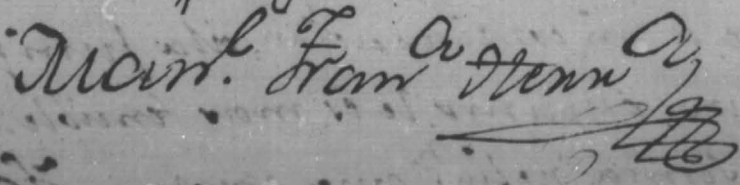 Man.l Fran.a Henn.a